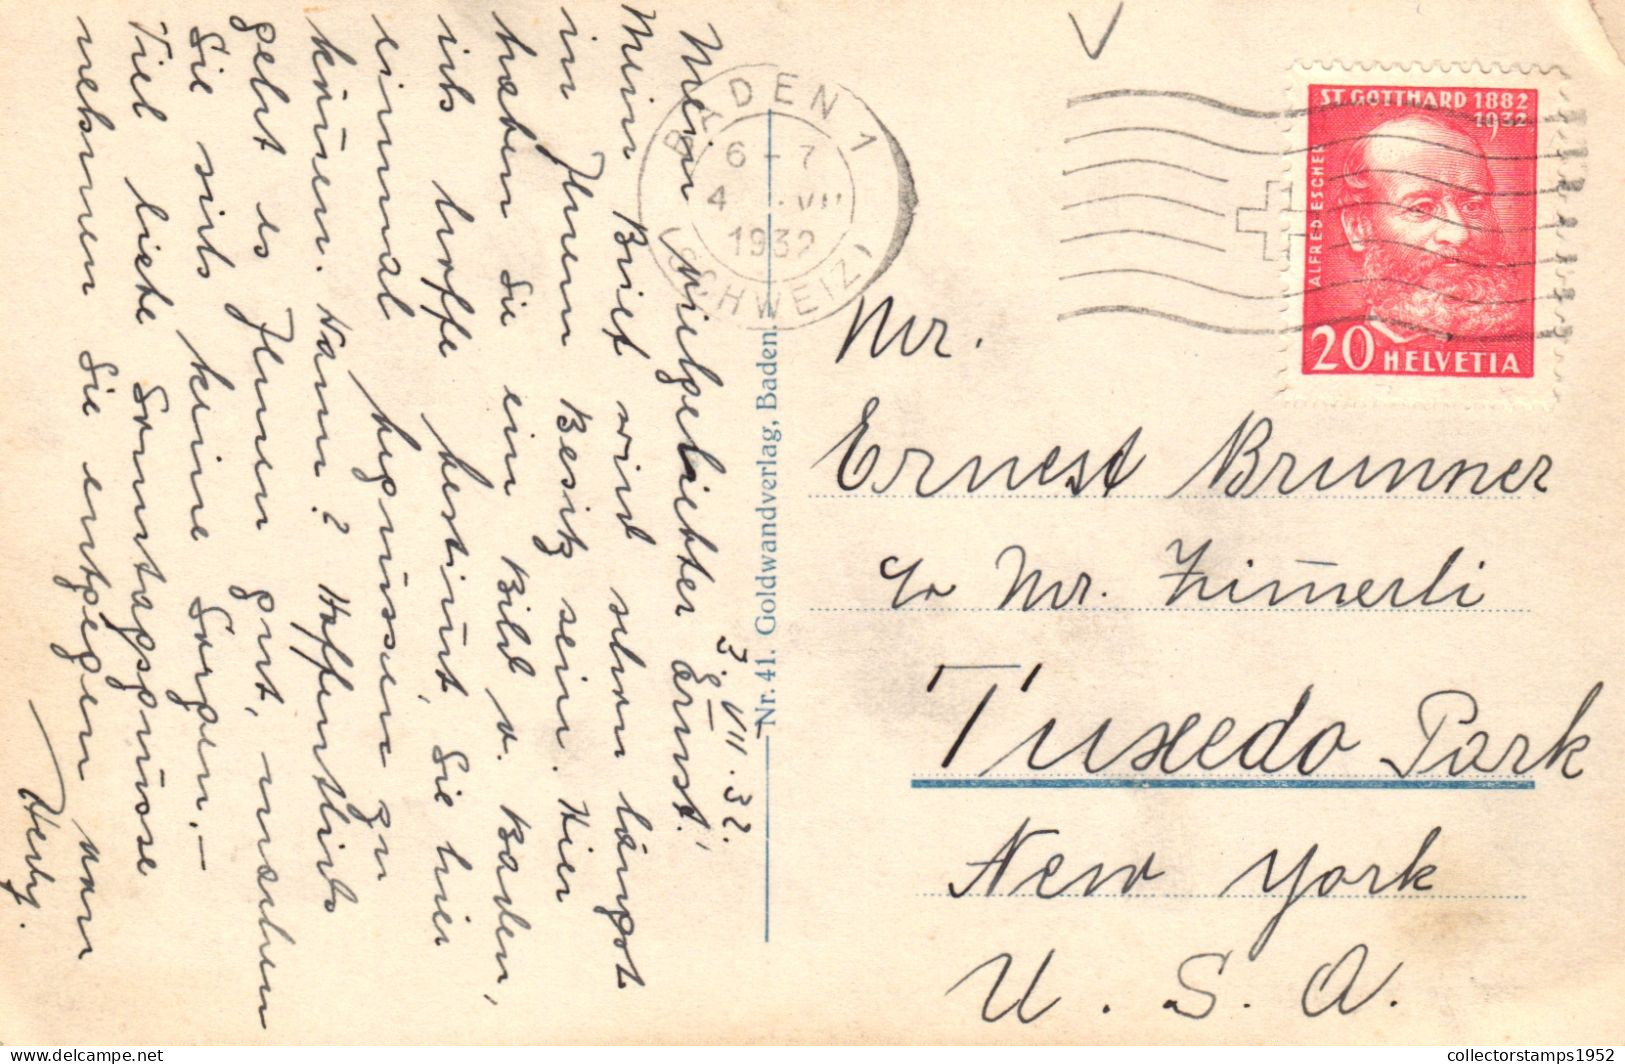 3. VII. 32.
Mein vielgeliebter Ernst!
Mein Brief wird schon längst
in Ihrem Besitz sein. Hier
haben Sie ein Bild v. Baden,
ich hoffe bestim̄t, Sie hier
einmal begrüssen zu
kön̄en. Wann? Hoffentlich
geht es Ihnen gut, machen
Sie sich keine Sorgen. –
Viel liebe Sonntagsgrüsse
nehmen Sie entgegen von
Hedy.
Nr. 41. Goldwandverlag, Baden.
BADEN 1
6 - 7
4 VII
1932
(SCHWEIZ)
ST. GOTTHARD 1882
1932
ALFRED ESCHER
20 HELVETIA
Mr.
Ernest Brunner
c/o Mr. Zim̄erli
Tuxedo Park
New York
U. S. A.
collectorstamps1952
© collectorstamps1952 - delcampe.net